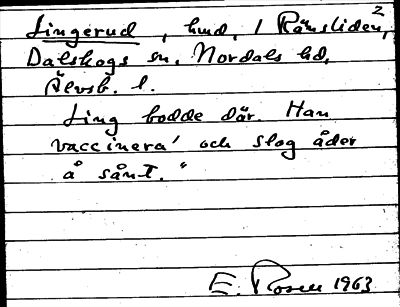 2
Lingerud, hmd, 1 Rämsliden,
Dalskogs sn, Nordals hd,
Älvsb. l.
Ling bodde där. Han
vaccinera' och slog åder
å sånt."
E. Rosen 1963